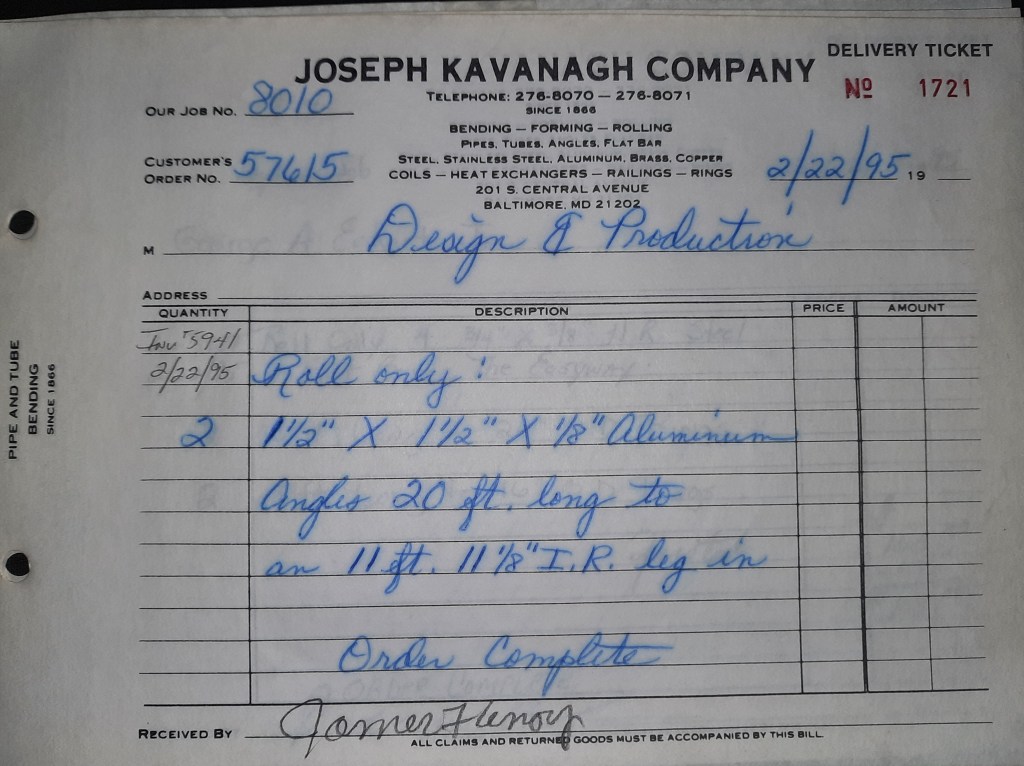 DELIVERY TICKET
JOSEPH KAVANAGH COMPANY
Nº 1721
OUR JOB NO. 8010
TELEPHONE: 276-8070 — 276-8071
SINCE 1866
BENDING — FORMING — ROLLING
PIPES, TUBES, ANGLES, FLAT BAR
CUSTOMER'S ORDER NO. 57615
STEEL, STAINLESS STEEL, ALUMINUM, BRASS, COPPER
COILS — HEAT EXCHANGERS — RAILINGS — RINGS
2/22/95 19
201 S. CENTRAL AVENUE
BALTIMORE, MD 21202
M Design & Production
ADDRESS
QUANTITY DESCRIPTION PRICE AMOUNT
Inv #5941
2/22/95 Roll only:
2 1 1/2" X 1 1/2" X 1/8" Aluminum
Angles 20 ft. long to
an 11 ft. 11 1/8" I.R. leg in
Order Complete
RECEIVED BY
ALL CLAIMS AND RETURNED GOODS MUST BE ACCOMPANIED BY THIS BILL
PIPE AND TUBE
BENDING
SINCE 1866